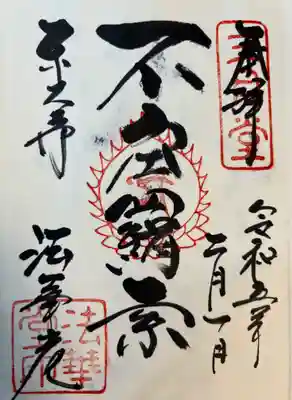 奉拝
三月堂
令和五年
二月一日
不空羂索
東大寺
法華堂
法華堂印